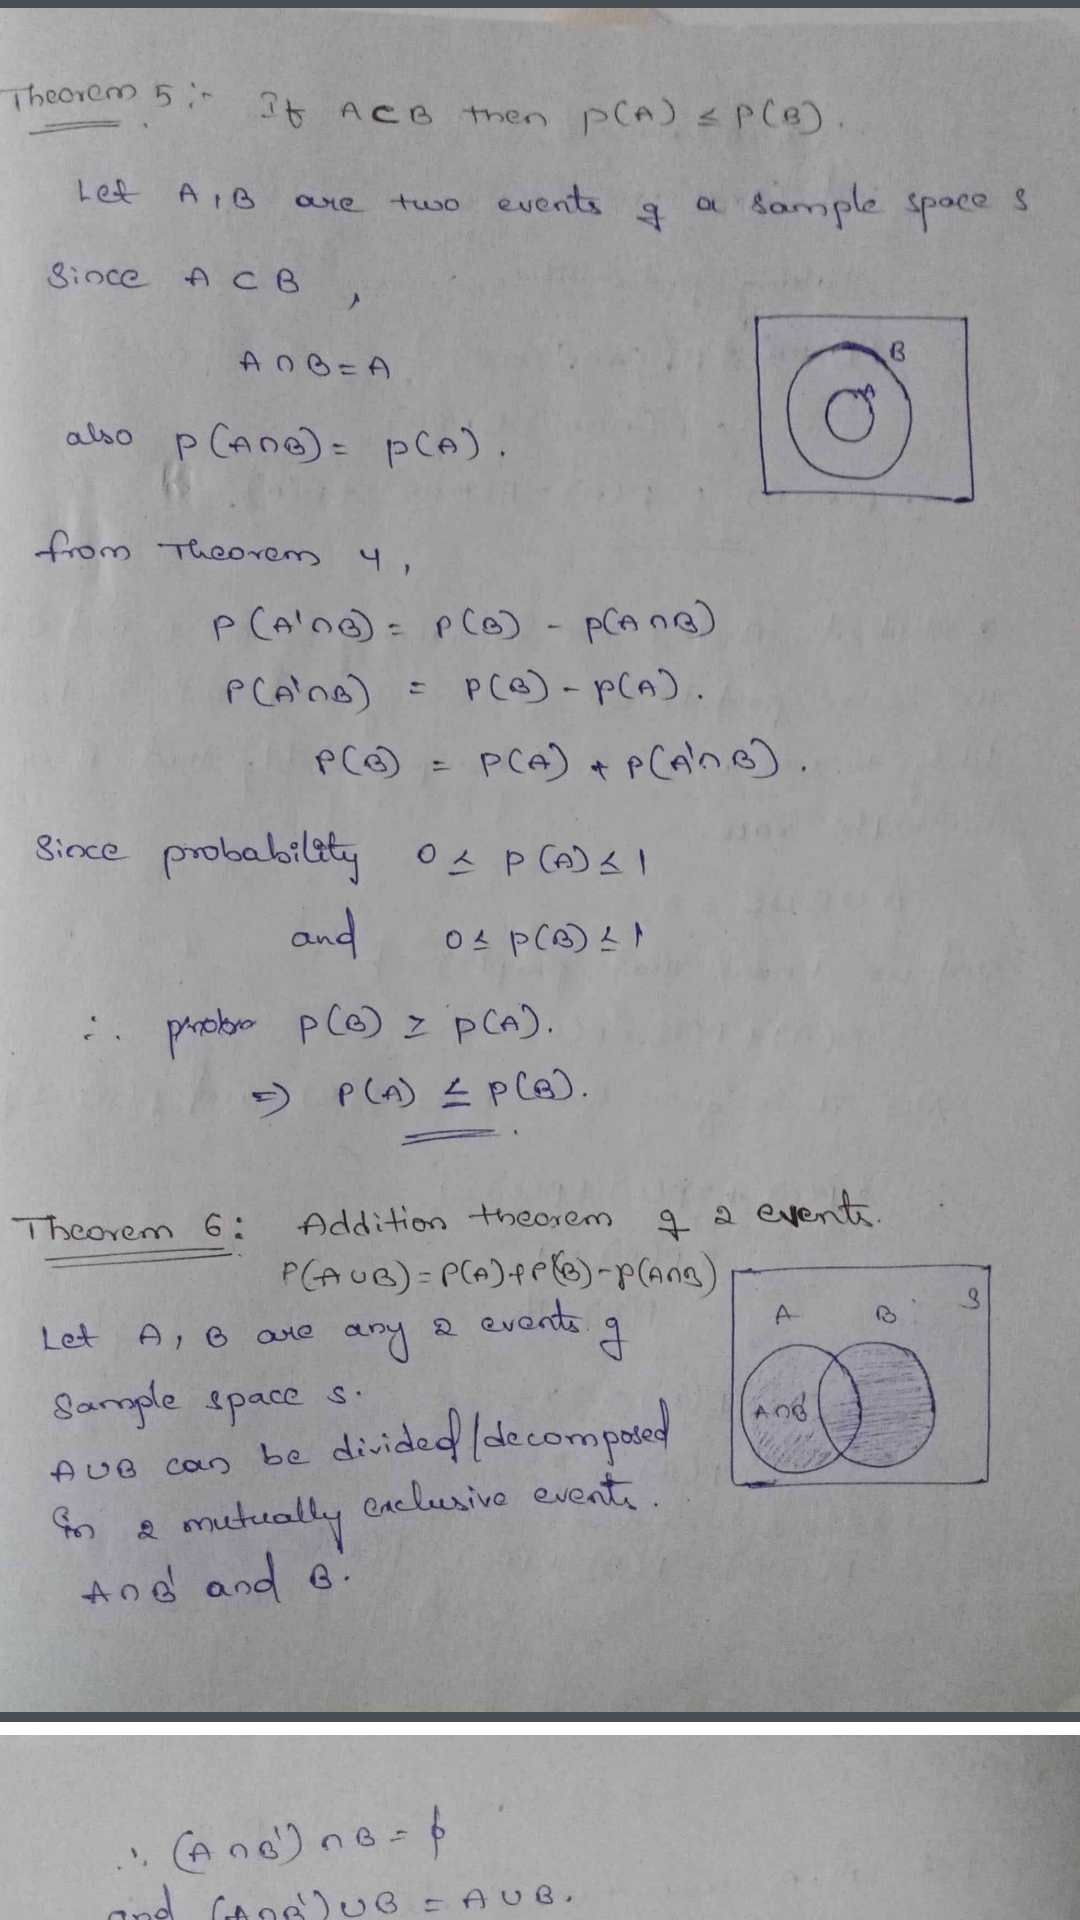 Theorem 5:- If A⊂B then p(A) ≤ P(B).
Let A, B are two events of a sample space S
Since A ⊂ B,
A∩B = A
also P(A∩B) = p(A).
B
A
from Theorem 4,
P(A'∩B) = P(B) - p(A∩B)
P(A'∩B) = P(B) - p(A).
P(B) = P(A) + P(A'∩B).
Since probability 0 ≤ P(A) ≤ 1
and 0 ≤ P(B) ≤ 1
∴ P(B) ≥ P(A).
⇒ P(A) ≤ P(B).
Theorem 6: Addition theorem of 2 events.
P(A∪B) = P(A)+P(B)-p(A∩B)
A B S
A∩B'
Let A, B are any 2 events of
Sample space S.
A∪B can be divided/decomposed
in 2 mutually exclusive events.
A∩B' and B.
∴ (A∩B')∩B = ϕ
and (A∩B')∪B = A∪B.